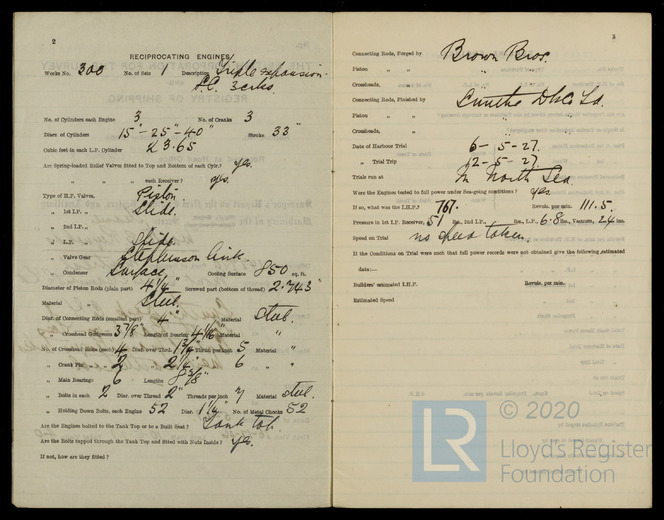 2
RECIPROCATING ENGINES
Works No. 300 No. of Sets 1 Description Triple expansion
3 crks.
No. of Cylinders each Engine 3 No. of Cranks 3
Diars. of Cylinders 15" - 25" - 40" Stroke 33"
Cubic feet in each L.P. Cylinder 23.65
Are Spring-loaded Relief Valves fitted to Top and Bottom of each Cylr.? Yes.
" " each Receiver? Yes.
Type of H.P. Valves, Piston.
" 1st L.P. " Slide.
" 2nd L.P. "
" L.P. " Slide.
" Valve Gear Stephenson link.
" Condenser Surface. Cooling Surface 850 sq. ft.
Diameter of Piston Rods (plain part) 4 1/4" Screwed part (bottom of thread) 2.743"
Material Steel.
Diar. of Connecting Rods (smallest part) 4" Material Steel.
" Crosshead Gudgeons 3 7/8" Length of Bearing 4 1/16" Material "
No. of Crosshead Bolts (each) 4 Diar. over Thrd. 1 3/4" Thrds. per inch 5 Material "
" Crank Pin " 2 " 2 1/4" " 6 " "
" Main Bearings 6 Lengths 8 3/8"
" Bolts in each 2 Diar. over Thread 2" Threads per inch 7 Material Steel.
" Holding Down Bolts, each Engine 52 Diar. 1 1/4" No. of Metal Chocks 52
Are the Engines bolted to the Tank Top or to a Built Seat? Tank top.
Are the Bolts tapped through the Tank Top and fitted with Nuts Inside? Yes.
If not, how are they fitted?
3
Connecting Rods, Forged by Brown Bros.
Piston " " "
Crossheads, " "
Connecting Rods, Finished by Ld.
Piston " "
Crossheads, " "
Date of Harbour Trial 6-5-27.
" Trial Trip 12-5-27.
Trials run at In North Sea.
Were the Engines tested to full power under Sea-going conditions? Yes.
If so, what was the I.H.P.? 767. Revols. per min. 111.5.
Pressure in 1st I.P. Receiver, 51 lbs., 2nd I.P., lbs., L.P., 6.8 lbs., Vacuum, 24 ins.
Speed on Trial no speed taken.
If the Conditions on Trial were such that full power records were not obtained give the following estimated
data:—
Builders' estimated I.H.P. Revols. per min.
Estimated Speed
© 2020
LR Lloyd's Register
Foundation